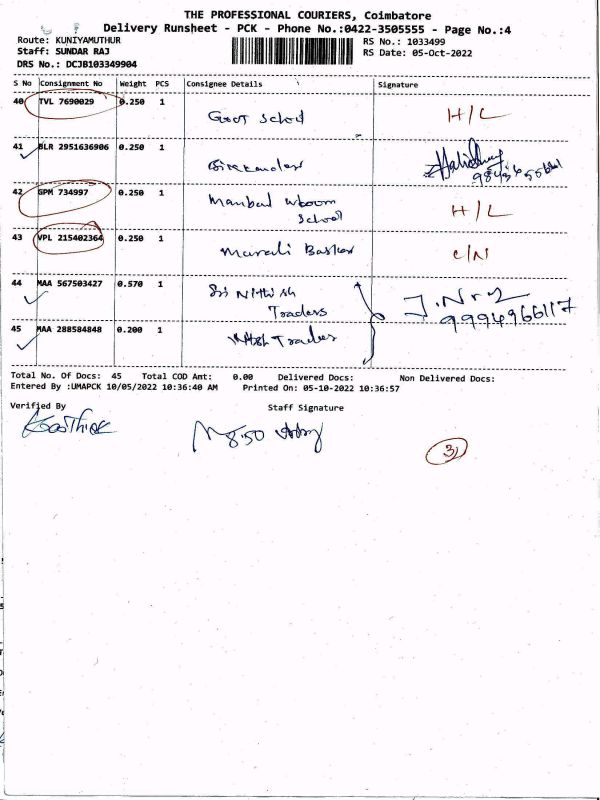 THE PROFESSIONAL COURIERS, Coimbatore
Delivery Runsheet - PCK - Phone No.:0422-3505555 - Page No.:4
Route: KUNIYAMUTHUR
RS No.: 1033499
Staff: SUNDAR RAJ
RS Date: 05-Oct-2022
DRS No.: DCJB103349904
S No Consignment No Weight PCS Consignee Details Signature
40 TVL 7690029 0.250 1 Govt School H/L
41 BLR 2951636906 0.250 1
42 GPM 734997 0.250 1 School H/L
43 VPL 215402364 0.250 1 Murali Baskar C/N
44 MAA 567503427 0.570 1 Sri Nithish Traders
9994966117
45 MAA 288584848 0.200 1 Traders
Total No. Of Docs: 45 Total COD Amt: 0.00 Delivered Docs: Non Delivered Docs:
Entered By :UMAPCK 10/05/2022 10:36:40 AM Printed On: 05-10-2022 10:36:57
Verified By Staff Signature